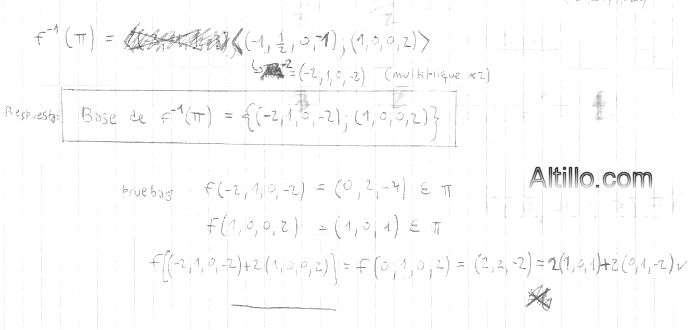 f⁻¹(π) = <(-1, 1/2, 0, -1); (1, 0, 0, 2)>
= (-2, 1, 0, -2) (multiplique x2)
Respuesta: Base de f⁻¹(π) = {(-2, 1, 0, -2); (1, 0, 0, 2)}
Altillo.com
pruebas f(-2, 1, 0, -2) = (0, 2, -4) ∈ π
f(1, 0, 0, 2) = (1, 0, 1) ∈ π
f[(-2, 1, 0, -2) + 2(1, 0, 0, 2)] = f(0, 1, 0, 2) = (2, 2, -2) = 2(1, 0, 1) + 2(0, 1, -2) ✓